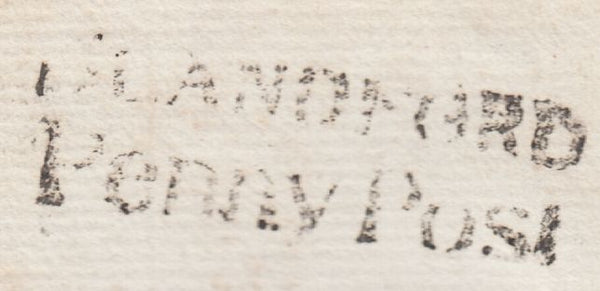 BLANDFORD
Penny Post